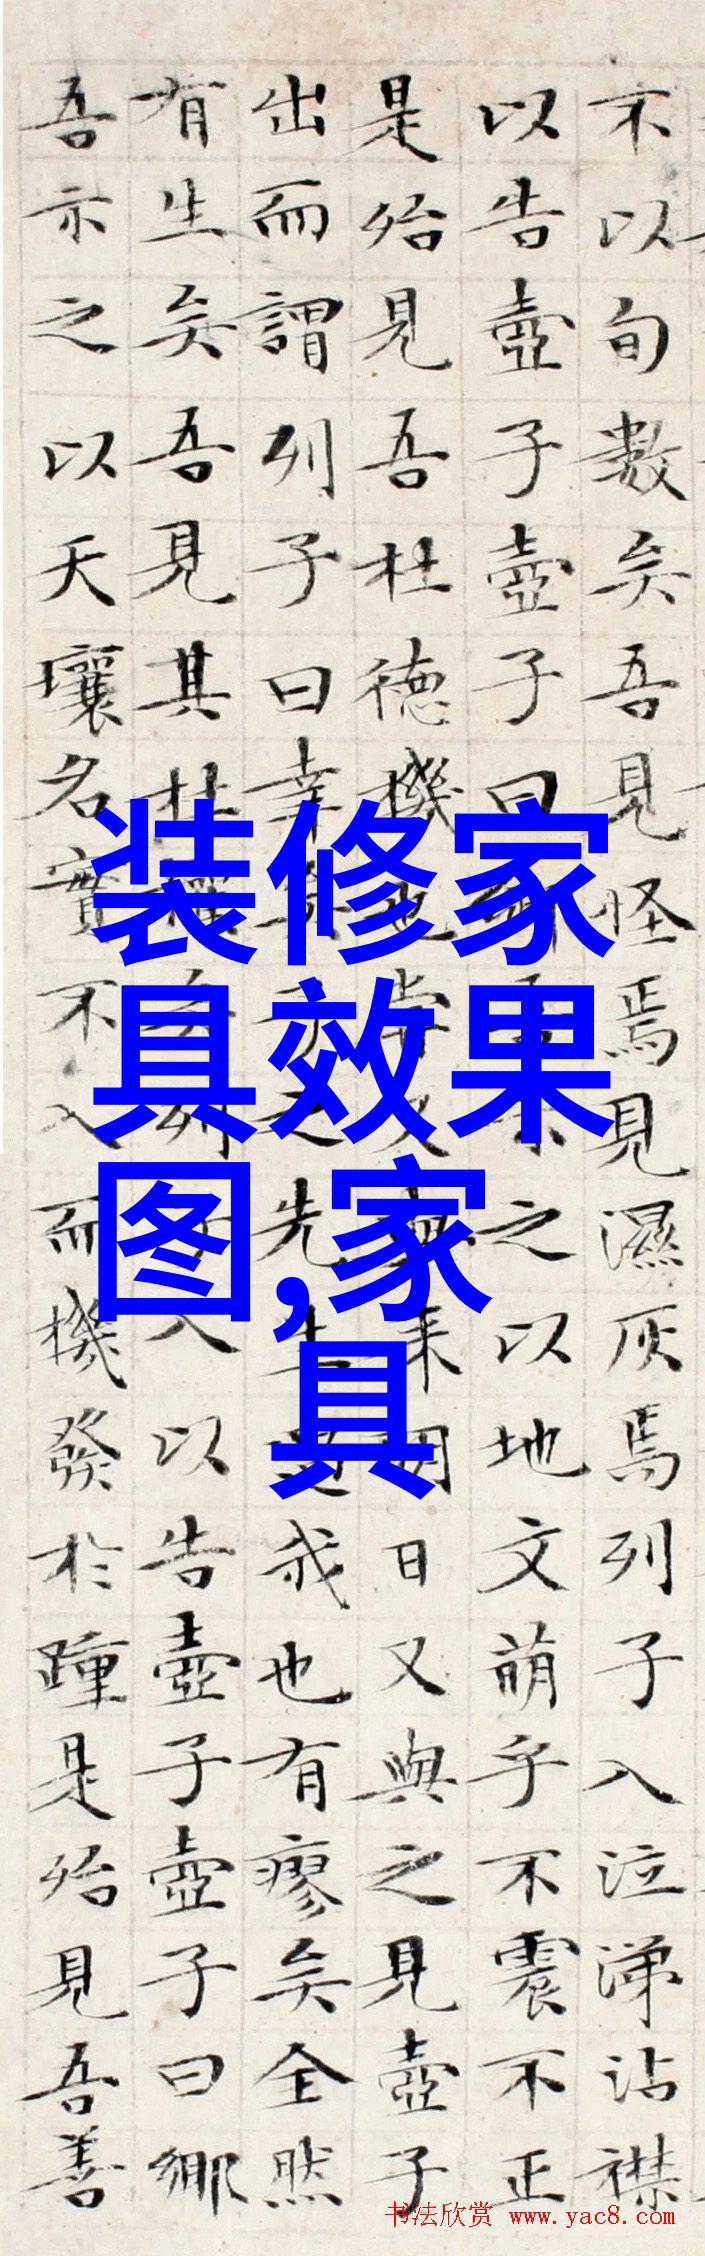 不以旬數矣吾見怪焉見濕灰焉列子入泣涕沾襟
以告壺子壺子曰鄉吾示之以地文萌乎不震不正
是殆見吾杜德機也嘗又與來明日又與之見壺子
出而謂列子曰幸矣子之先生遇我也有瘳矣全然
有生矣吾見其杜權矣列子入以告壺子壺子曰鄉
吾示之以天壤名實不入而機發於踵是殆見吾善
装修家
具效果
图,家
具
书法欣赏 www.yac8.com